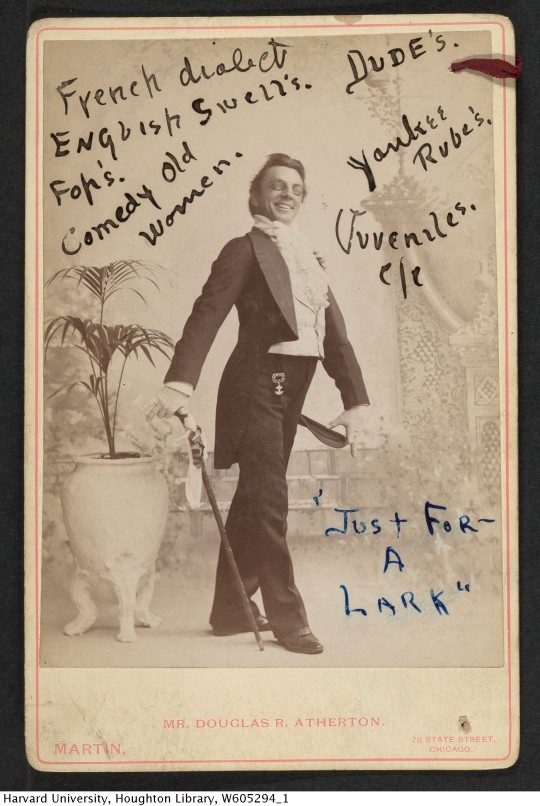 French dialect
ENGLISH Swell's.
Fop's.
Comedy Old
Women.
DUDE'S.
Yankee
Rube's.
Juveniles.
etc
"JUST FOR-
A
LARK"
MR. DOUGLAS R. ATHERTON.
MARTIN,
75 STATE STREET,
CHICAGO.
Harvard University, Houghton Library, W605294_1